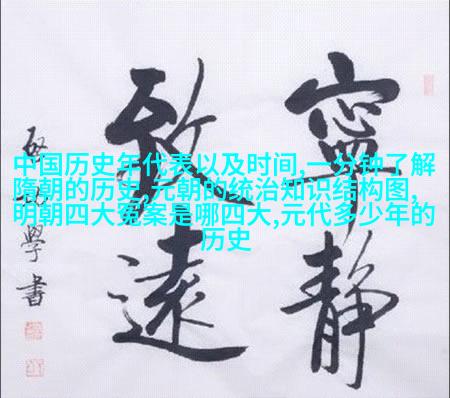 中国历史年代表以及时间,一分钟了解
隋朝的历史,元朝的统治知识结构图,
明朝四大冤案是哪四大,元代多少年的
历史
寧靜
致遠
學書